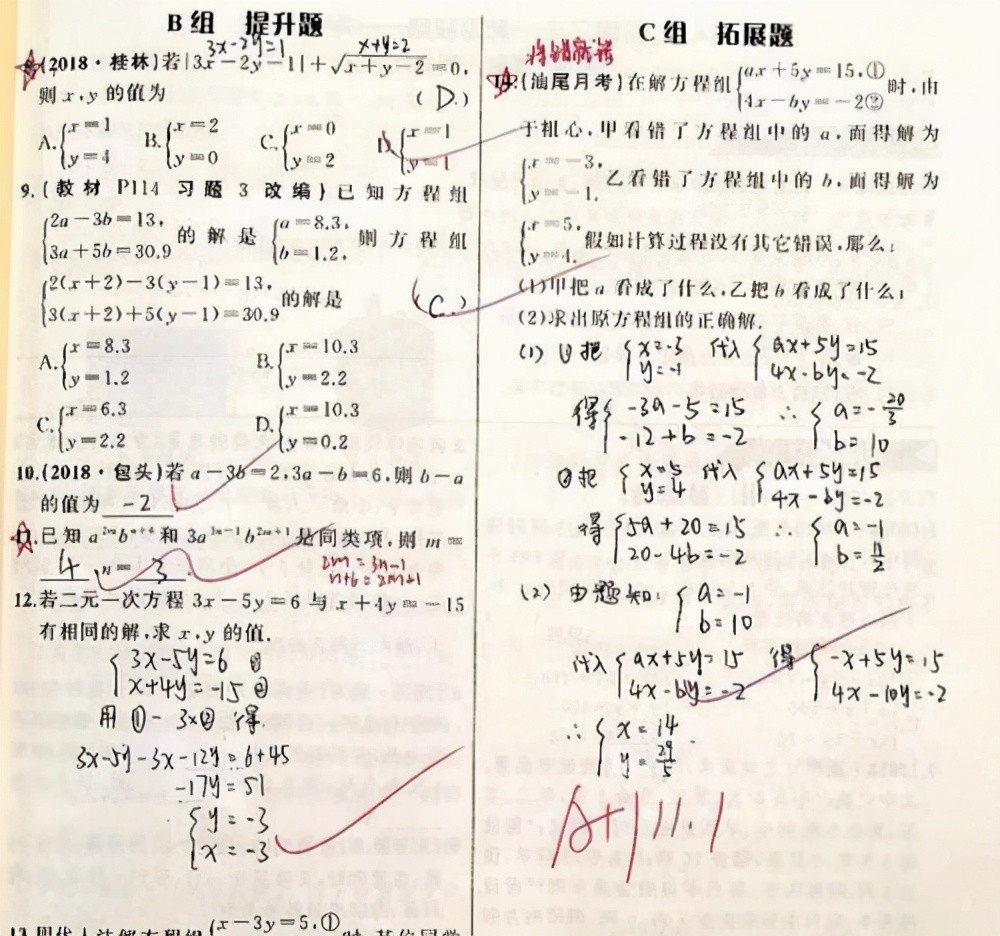 B组 提升题
3x-2y=1 x+y=2
8.(2018·桂林)若|3x-2y-1|+√x+y-2=0,
则x,y的值为 (D.)
A.{x=1 y=4 B.{x=2 y=0 C.{x=0 y=2 D.{x=1 y=1
9.(教材 P114 习题 3 改编)已知方程组
{2a-3b=13, 3a+5b=30.9 的解是 {a=8.3, b=1.2, 则方程组
{2(x+2)-3(y-1)=13, 3(x+2)+5(y-1)=30.9 的解是 (C.)
A.{x=8.3 y=1.2 B.{x=10.3 y=2.2
C.{x=6.3 y=2.2 D.{x=10.3 y=0.2
10.(2018·包头)若a-3b=2,3a-b=6,则b-a
的值为 -2
11.已知a²ᵐbⁿ⁺⁶和3a³ⁿ⁻¹b²ᵐ⁺¹是同类项,则m=
4 、n= 3 .
2m=3n-1
n+6=2m+1
12.若二元一次方程3x-5y=6与x+4y=-15
有相同的解,求x,y的值.
{3x-5y=6 ①
x+4y=-15 ②
用①-3x②得.
3x-5y-3x-12y=6+45
-17y=51
{y=-3
x=-3
{x-3y=5,①
C组 拓展题
将错就错
14.(汕尾月考)在解方程组{ax+5y=15,① 4x-by=-2② 时,由
于粗心,甲看错了方程组中的a,而得解为
{x=-3, y=-1, 乙看错了方程组中的b,而得解为
{x=5, y=4. 假如计算过程没有其它错误,那么:
(1)甲把a看成了什么,乙把b看成了什么;
(2)求出原方程组的正确解.
(1) ①把 {x=-3 y=-1 代入 {ax+5y=15 4x-by=-2
得{-3a-5=15 -12+b=-2 ∴{a=-20/3 b=10
②把 {x=5 y=4 代入 {ax+5y=15 4x-by=-2
得{5a+20=15 20-4b=-2 ∴{a=-1 b=11/2
(2) 由题知: {a=-1 b=10
代入{ax+5y=15 4x-by=-2 得{-x+5y=15 4x-10y=-2
∴{x=14 y=29/5.
A+